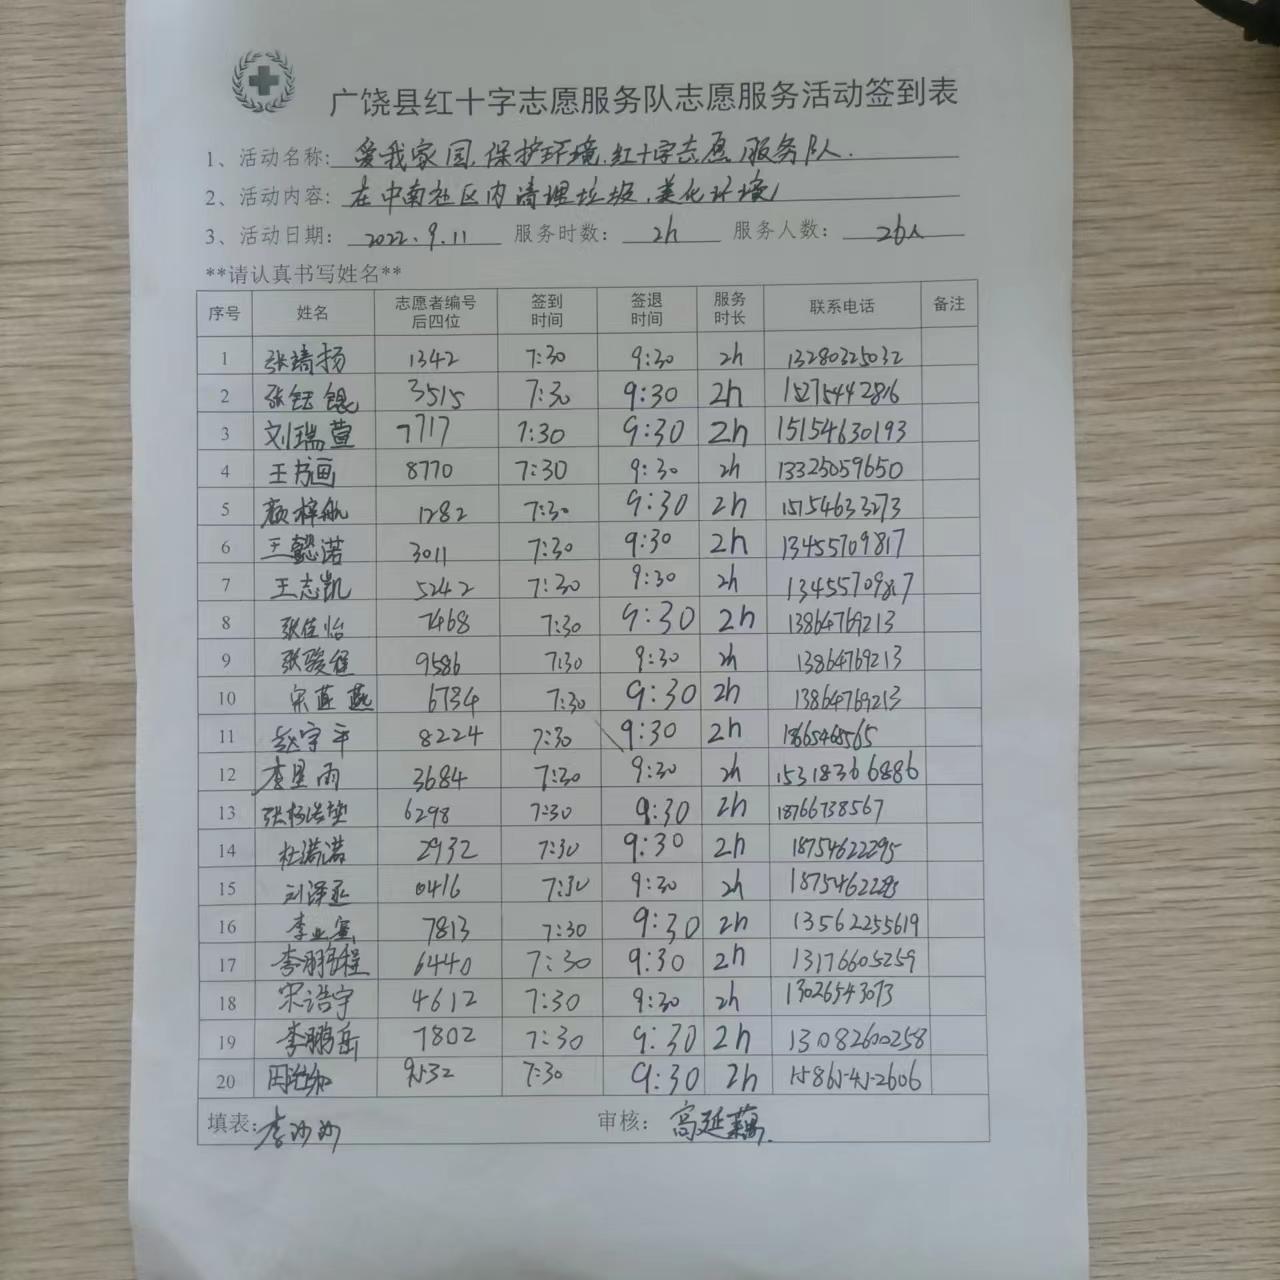 广饶县红十字志愿服务队志愿服务活动签到表
1、活动名称: 爱我家园.保护环境.红十字志愿服务队.
2、活动内容: 在中南社区内清理垃圾.美化环境
3、活动日期: 2022.9.11 服务时数: 2h 服务人数: 26人
**请认真书写姓名**
序号 姓名 志愿者编号后四位 签到时间 签退时间 服务时长 联系电话 备注
1 张靖扬 1342 7:30 9:30 2h 13280325032
2 张钰锟 3515 7:30 9:30 2h 15275442816
3 刘瑞萱 7717 7:30 9:30 2h 15154630193
4 王书画 8770 7:30 9:30 2h 13325059650
5 颜梓航 1282 7:30 9:30 2h 15154633273
6 王懿诺 3011 7:30 9:30 2h 13455709817
7 王志凯 5242 7:30 9:30 2h 13455709817
8 张佳怡 7468 7:30 9:30 2h 13864769213
9 张骏程 9586 7:30 9:30 2h 13864769213
10 宋燕燕 6734 7:30 9:30 2h 13864769213
11 赵宇平 8224 7:30 9:30 2h
12 李星雨 3684 7:30 9:30 2h 15318366886
13 6298 7:30 9:30 2h 18766738567
14 杜诺诺 2932 7:30 9:30 2h 18754622295
15 刘泽丞 0416 7:30 9:30 2h
16 李业 7813 7:30 9:30 2h 13562255619
17 李鹏程 6440 7:30 9:30 2h 13176605259
18 宋浩宇 4612 7:30 9:30 2h 13026543073
19 李鹏岳 7802 7:30 9:30 2h 13082600258
20 9532 7:30 9:30 2h 15865452606
填表: 李沙沙 审核: 高延藕.